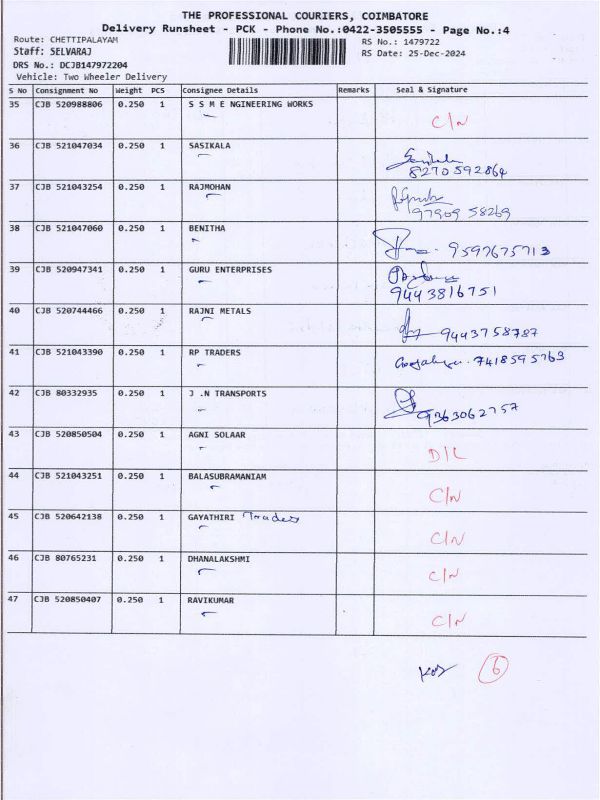 THE PROFESSIONAL COURIERS, COIMBATORE
Delivery Runsheet - PCK - Phone No.:0422-3505555 - Page No.:4
Route: CHETTIPALAYAM
RS No.: 1479722
Staff: SELVARAJ
RS Date: 25-Dec-2024
DRS No.: DCJB147972204
Vehicle: Two Wheeler Delivery
S No Consignment No Weight PCS Consignee Details Remarks Seal & Signature
35 CJB 520988806 0.250 1 S S M E NGINEERING WORKS C/N
36 CJB 521047034 0.250 1 SASIKALA
8270592864
37 CJB 521043254 0.250 1 RAJMOHAN
97909 58269
38 CJB 521047060 0.250 1 BENITHA 9597675713
39 CJB 520947341 0.250 1 GURU ENTERPRISES
9443816751
40 CJB 520744466 0.250 1 RAJNI METALS 9443758787
41 CJB 521043390 0.250 1 RP TRADERS 7418595763
42 CJB 80332935 0.250 1 J .N TRANSPORTS
9363062757
43 CJB 520850504 0.250 1 AGNI SOLAAR D/L
44 CJB 521043251 0.250 1 BALASUBRAMANIAM C/N
45 CJB 520642138 0.250 1 GAYATHIRI Traders C/N
46 CJB 80765231 0.250 1 DHANALAKSHMI C/N
47 CJB 520850407 0.250 1 RAVIKUMAR C/N
6